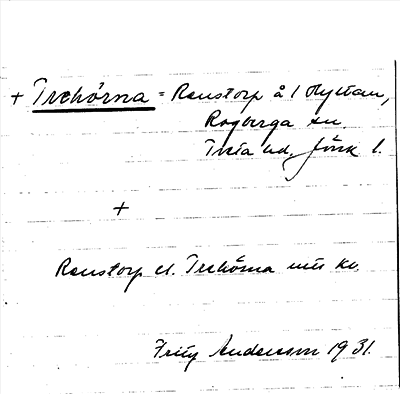 + Trehörna = Ranstorp å 1 Hyltan,
Rogberga sn.
Tveta hd. Jönk l.
+
Ranstorp el. Trehörna intr kv.
Fritz Andersson 1931.